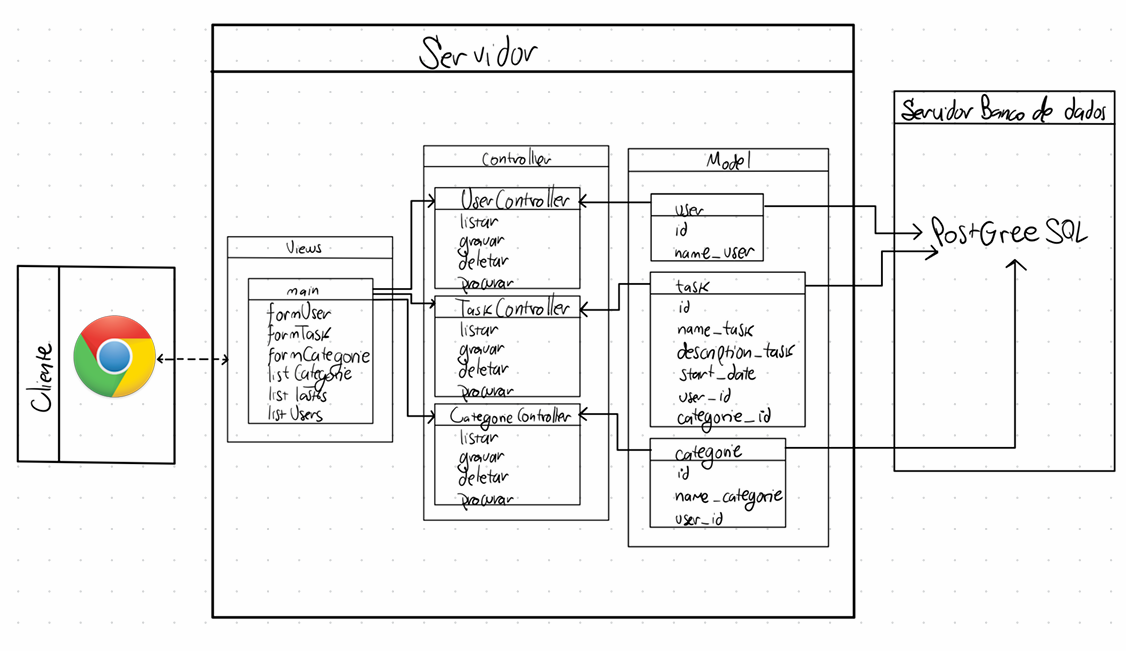 Servidor
Servidor Banco de dados
PostGree SQL
Cliente
Views
main
formUser
formTask
formCategorie
list Categorie
list Tasks
list Users
Controller
UserController
listar
gravar
deletar
procurar
TaskController
listar
gravar
deletar
procurar
CategorieController
listar
gravar
deletar
procurar
Model
user
id
name_user
task
id
name_task
description_task
start_date
user_id
categorie_id
categorie
id
name_categorie
user_id